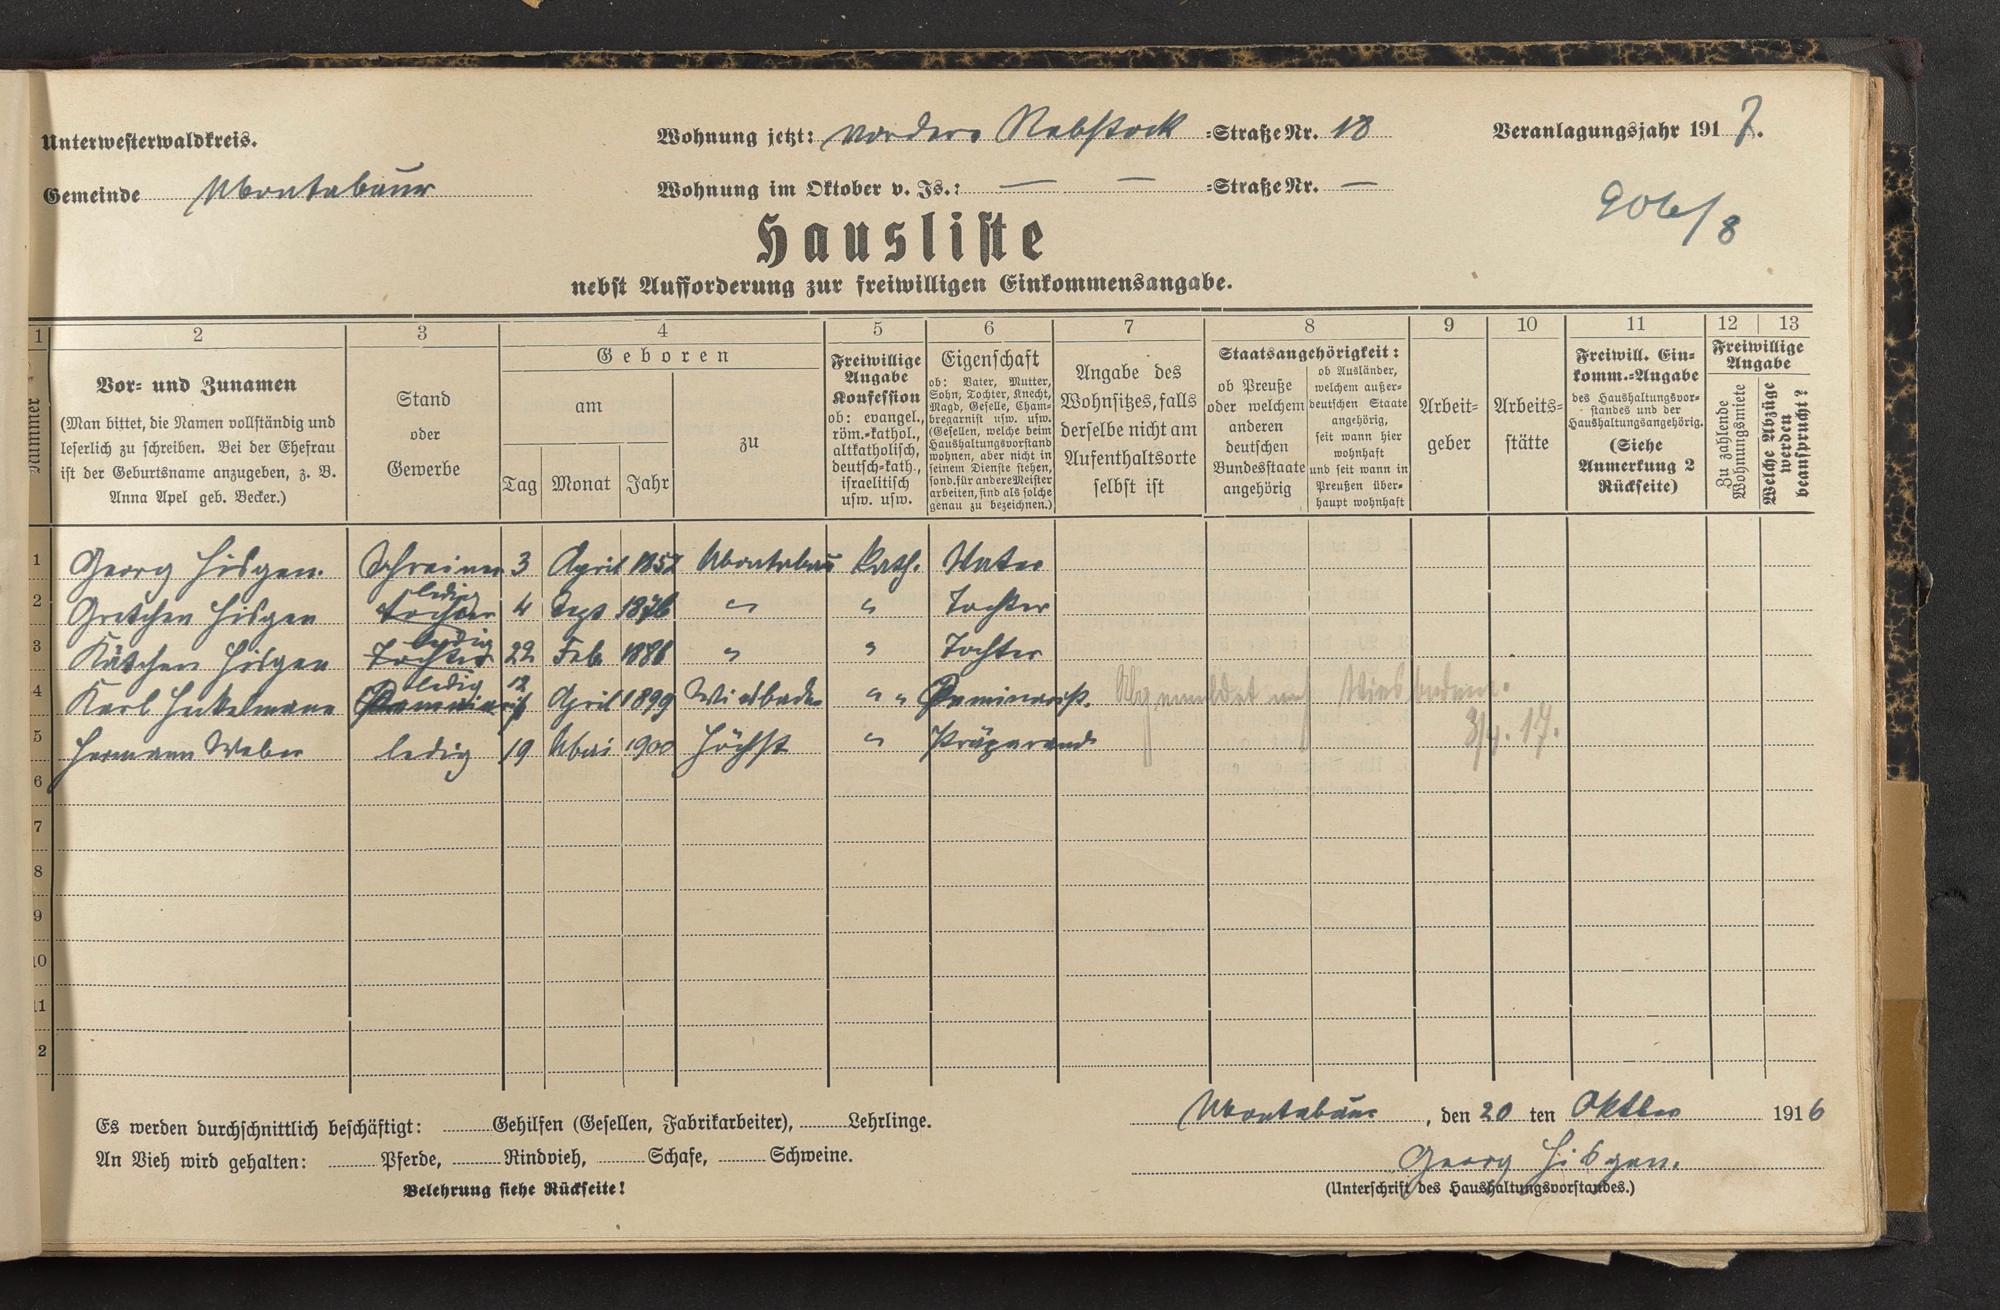 Unterwesterwaldkreis.
Gemeinde Montabaur
Wohnung jetzt: Vordere Rebstock =Straße Nr. 18
Wohnung im Oktober v. Js.: — — =Straße Nr. —
Veranlagungsjahr 1917.
906/8
Hausliste
nebst Aufforderung zur freiwilligen Einkommensangabe.
1 2 3 4 5 6 7 8 9 10 11 12 13
Nummer
Vor- und Zunamen
(Man bittet, die Namen vollständig und
leserlich zu schreiben. Bei der Ehefrau
ist der Geburtsname anzugeben, z. B.
Anna Apel geb. Becker.)
Stand
oder
Gewerbe
Geboren
am
Tag Monat Jahr
zu
Freiwillige
Angabe
Konfession
ob: evangel.,
röm.-kathol.,
altkatholisch,
deutsch-kath.,
israelitisch
usw. usw.
Eigenschaft
ob: Vater, Mutter,
Sohn, Tochter, Knecht,
Magd, Geselle, Cham-
bregarnist usw. usw.
(Gesellen, welche beim
Haushaltungsvorstand
wohnen, aber nicht in
seinem Dienste stehen,
sond. für andere Meister
arbeiten, sind als solche
genau zu bezeichnen.)
Angabe des
Wohnsitzes, falls
derselbe nicht am
Aufenthaltsorte
selbst ist
Staatsangehörigkeit:
ob Preuße
oder welchem
anderen
deutschen
Bundesstaate
angehörig
ob Ausländer,
welchem außer-
deutschen Staate
angehörig,
seit wann hier
wohnhaft
und seit wann in
Preußen über-
haupt wohnhaft
Arbeit-
geber
Arbeits-
stätte
Freiwill. Ein-
komm.-Angabe
des Haushaltungsvor-
standes und der
Haushaltungsangehörig.
(Siehe
Anmerkung 2
Rückseite)
Freiwillige
Angabe
Zu zahlende
Wohnungsmiete
Welche Abzüge
werden
beansprucht?
1 Georg Hisgen. Schreiner 3 April 1852 Montabaur kath. Vater
2 Gretchen Hisgen Tochter ledig 4 Sept 1876 " " Tochter
3 Kätchen Hisgen Tochter ledig 22 Feb 1886 " " Tochter
4 Karl Henkelmann Seminarist ledig 12 April 1899 Wiesbaden " " Seminarist. Abgemeldet nach Wiesbaden.
3/4. 17.
5 Hermann Weber ledig 19 Mai 1900 Höchst " Präparand
6
7
8
9
10
11
12
Es werden durchschnittlich beschäftigt: Gehilfen (Gesellen, Fabrikarbeiter), Lehrlinge.
An Vieh wird gehalten: Pferde, Rindvieh, Schafe, Schweine.
Belehrung siehe Rückseite!
Montabaur, den 20 ten Oktber 1916
Georg Hisgen.
(Unterschrift des Haushaltungsvorstandes.)